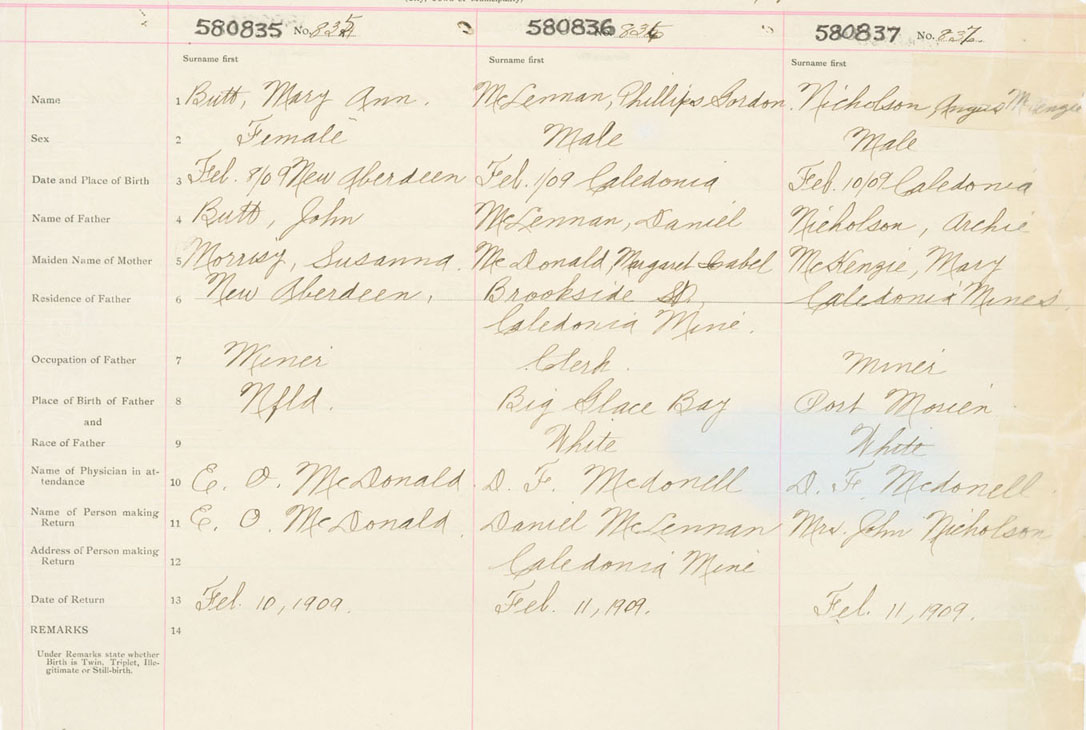 (City, Town or Municipality)
580835 No. 835 580836 No. 836 580837 No. 837
Surname first Surname first Surname first
Name 1 Butt, Mary Ann. McLennan, Phillips Gordon. Nicholson, Angus McKenzie
Sex 2 Female Male Male
Date and Place of Birth 3 Feb. 8/09 New Aberdeen Feb. 1/09 Caledonia Feb. 10/09 Caledonia
Name of Father 4 Butt, John McLennan, Daniel Nicholson, Archie
Maiden Name of Mother 5 Morrisy, Susanna. McDonald, Margaret Isabel McKenzie, Mary
Residence of Father 6 New Aberdeen, Brookside St., Caledonia Mines
Caledonia Mine.
Occupation of Father 7 Miner Clerk. Miner
Place of Birth of Father 8 Nfld. Big Glace Bay Port Morien
and
Race of Father 9 White White
Name of Physician in at-
tendance 10 E. O. McDonald. D. F. Mcdonell D. F. Mcdonell.
Name of Person making
Return 11 E. O. McDonald. Daniel McLennan Mrs. John Nicholson
Address of Person making
Return 12 Caledonia Mine
Date of Return 13 Feb. 10, 1909. Feb. 11, 1909. Feb. 11, 1909.
REMARKS 14
Under Remarks state whether
Birth is Twin, Triplet, Ille-
gitimate or Still-birth.